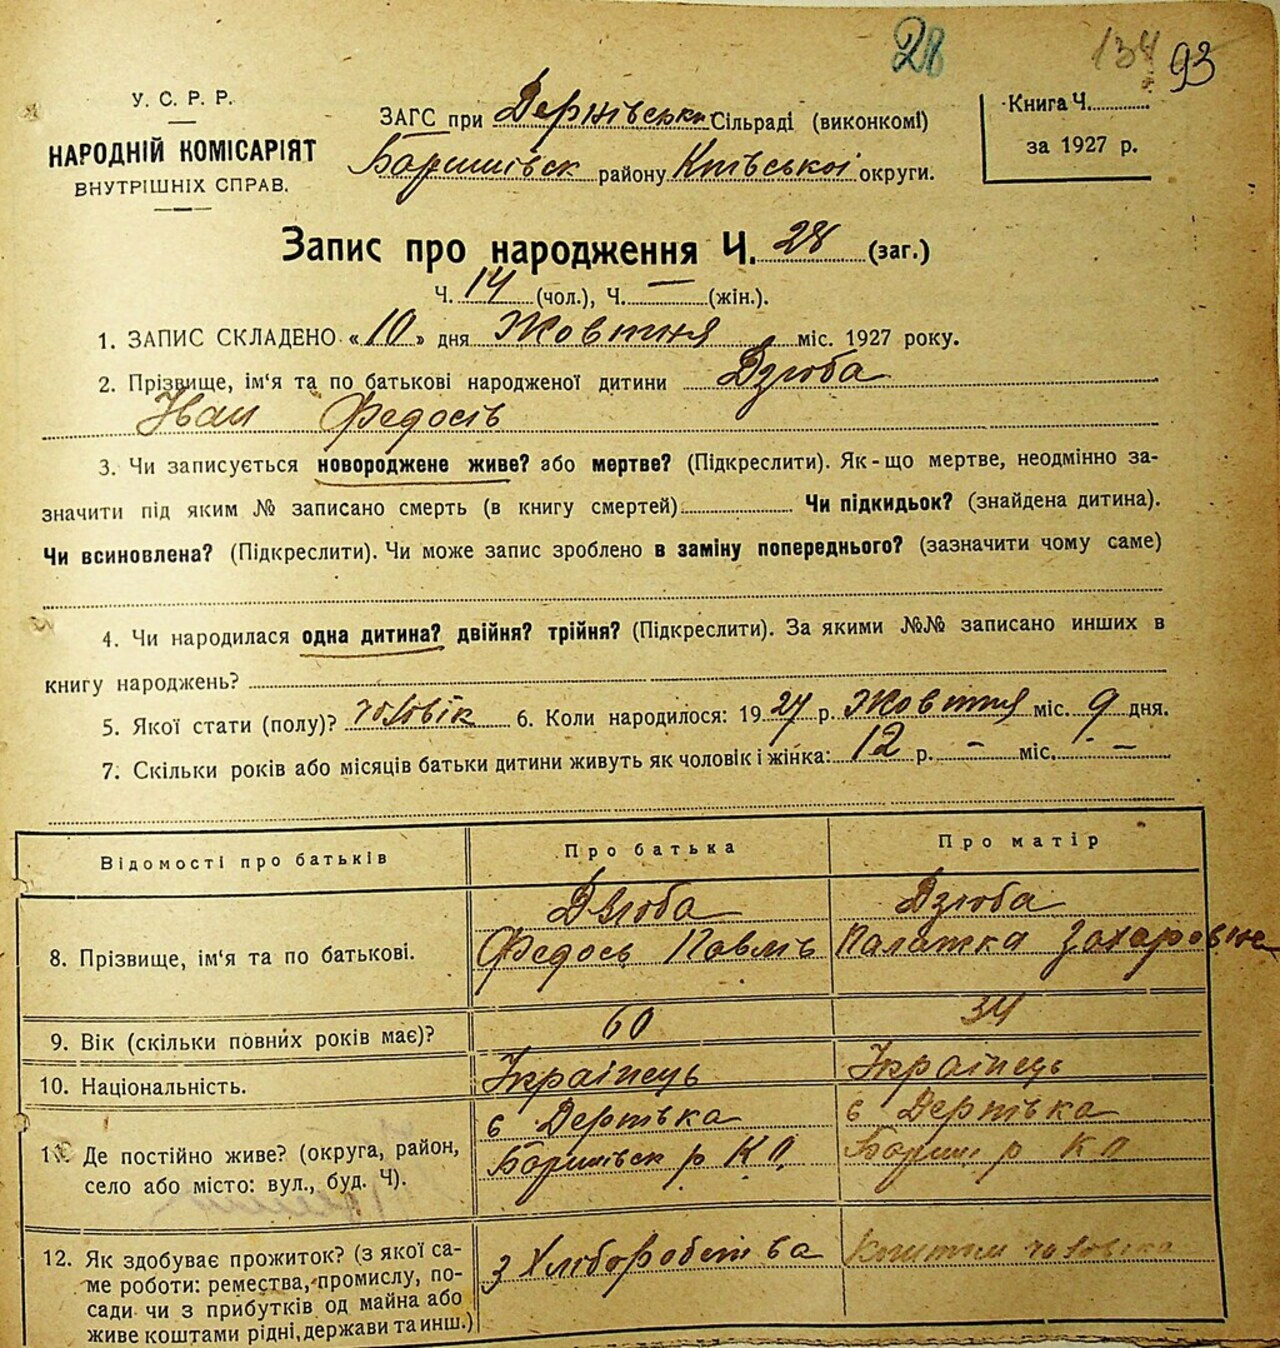 28 134 93
У. С. Р. Р.
НАРОДНІЙ КОМІСАРІЯТ
ВНУТРІШНІХ СПРАВ.
ЗАГС при Дернівськи Сільраді (виконкомі)
Баришівск району Київської округи.
Книга Ч.
за 1927 р.
Запис про народження Ч. 28 (заг.)
Ч. 14 (чол.), Ч. — (жін.).
1. ЗАПИС СКЛАДЕНО «10» дня Жовтня міс. 1927 року.
2. Прізвище, ім'я та по батькові народженої дитини Дзюба
Іван Федосів
3. Чи записується новороджене живе? або мертве? (Підкреслити). Як-що мертве, неодмінно за-
значити під яким № записано смерть (в книгу смертей) Чи підкидьок? (знайдена дитина).
Чи всиновлена? (Підкреслити). Чи може запис зроблено в заміну попереднього? (зазначити чому саме)
4. Чи народилася одна дитина? двійня? трійня? (Підкреслити). За якими №№ записано инших в
книгу народжень?
5. Якої стати (полу)? чоловік 6. Коли народилося: 1927 р. Жовтня міс. 9 дня.
7. Скільки років або місяців батьки дитини живуть як чоловік і жінка: 12 р. — міс. —
Відомості про батьків Про батька Про матір
8. Прізвище, ім'я та по батькові. Дзюба Дзюба
Федось Павлів Палажка Захаровна
9. Вік (скільки повних років має)? 60 34
10. Національність. Українець Українець
11. Де постійно живе? (округа, район, с Дернівка с Дернівка
село або місто: вул., буд. Ч). Баришівск р К О Бориш р К О
12. Як здобуває прожиток? (з якої са-
ме роботи: ремества, промислу, по- з Хліборобства Коштом чоловіка
сади чи з прибутків од майна або
живе коштами рідні, держави та инш.)